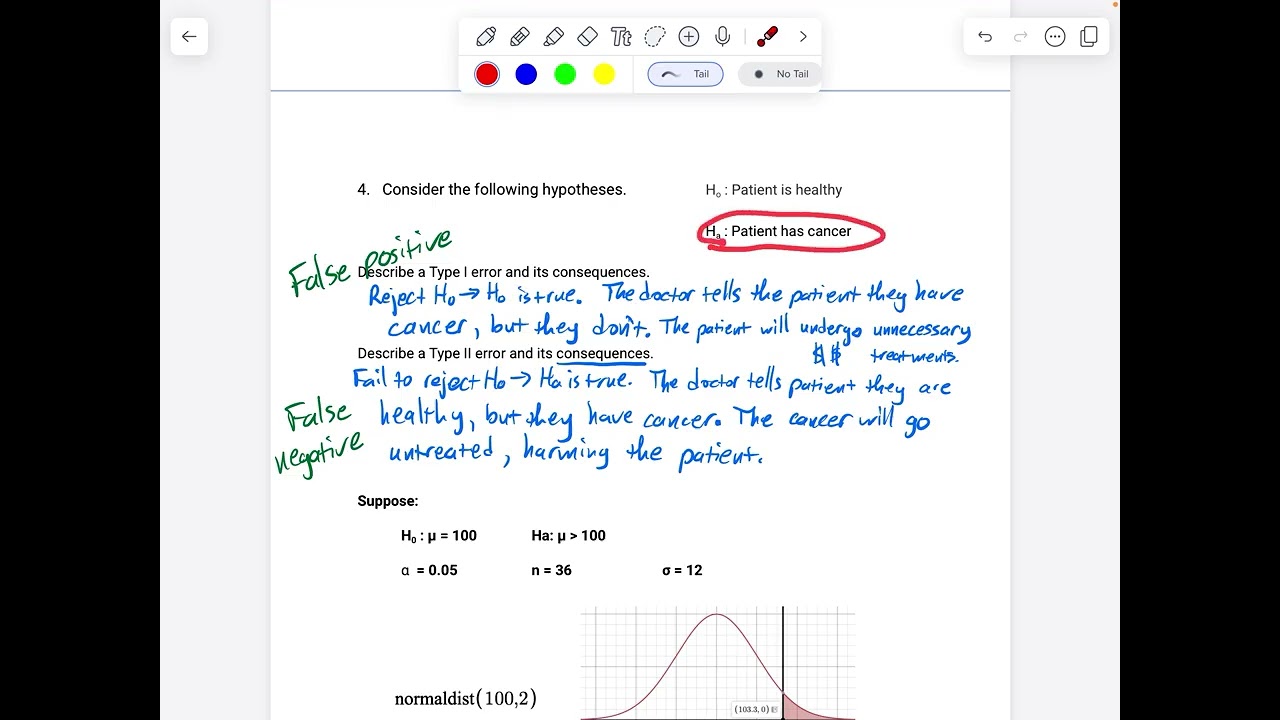 Tt
Tail
No Tail
4. Consider the following hypotheses.
H₀ : Patient is healthy
Hₐ : Patient has cancer
False positive
Describe a Type I error and its consequences.
Reject H₀ → H₀ is true. The doctor tells the patient they have
cancer, but they don't. The patient will undergo unnecessary
$$ treatments.
Describe a Type II error and its consequences.
Fail to reject H₀ → Ha is true. The doctor tells patient they are
False
healthy, but they have cancer. The cancer will go
negative
untreated, harming the patient.
Suppose:
H₀ : μ = 100
Ha: μ > 100
α = 0.05
n = 36
σ = 12
(103.3, 0)
normaldist(100,2)